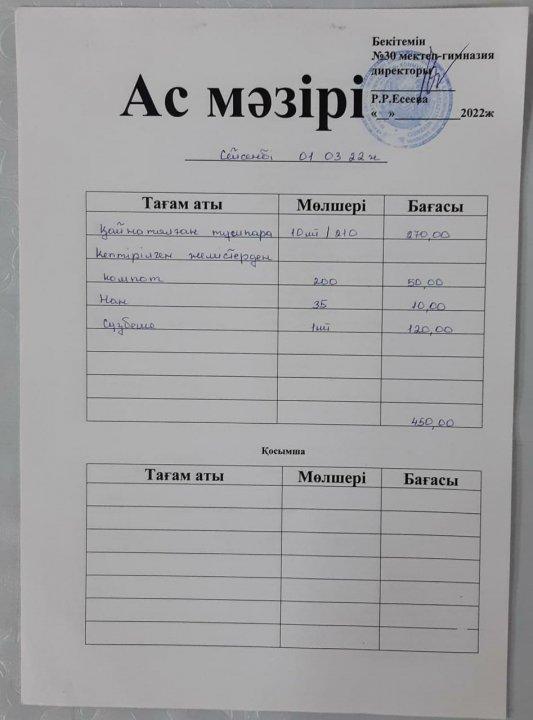 Бекітемін
№30 мектеп-гимназия
директоры
Р.Р.Есеева
« » 2022ж
Ас мәзірі
Сейсенбі 01 03 22ж
Тағам аты Мөлшері Бағасы
Қайнатылған тұшпара 10шт / 210 270,00
Кептірілген жемістерден
компот 200 50,00
Нан 35 10,00
Сүзбеше 1шт 120,00
450,00
Қосымша
Тағам аты Мөлшері Бағасы